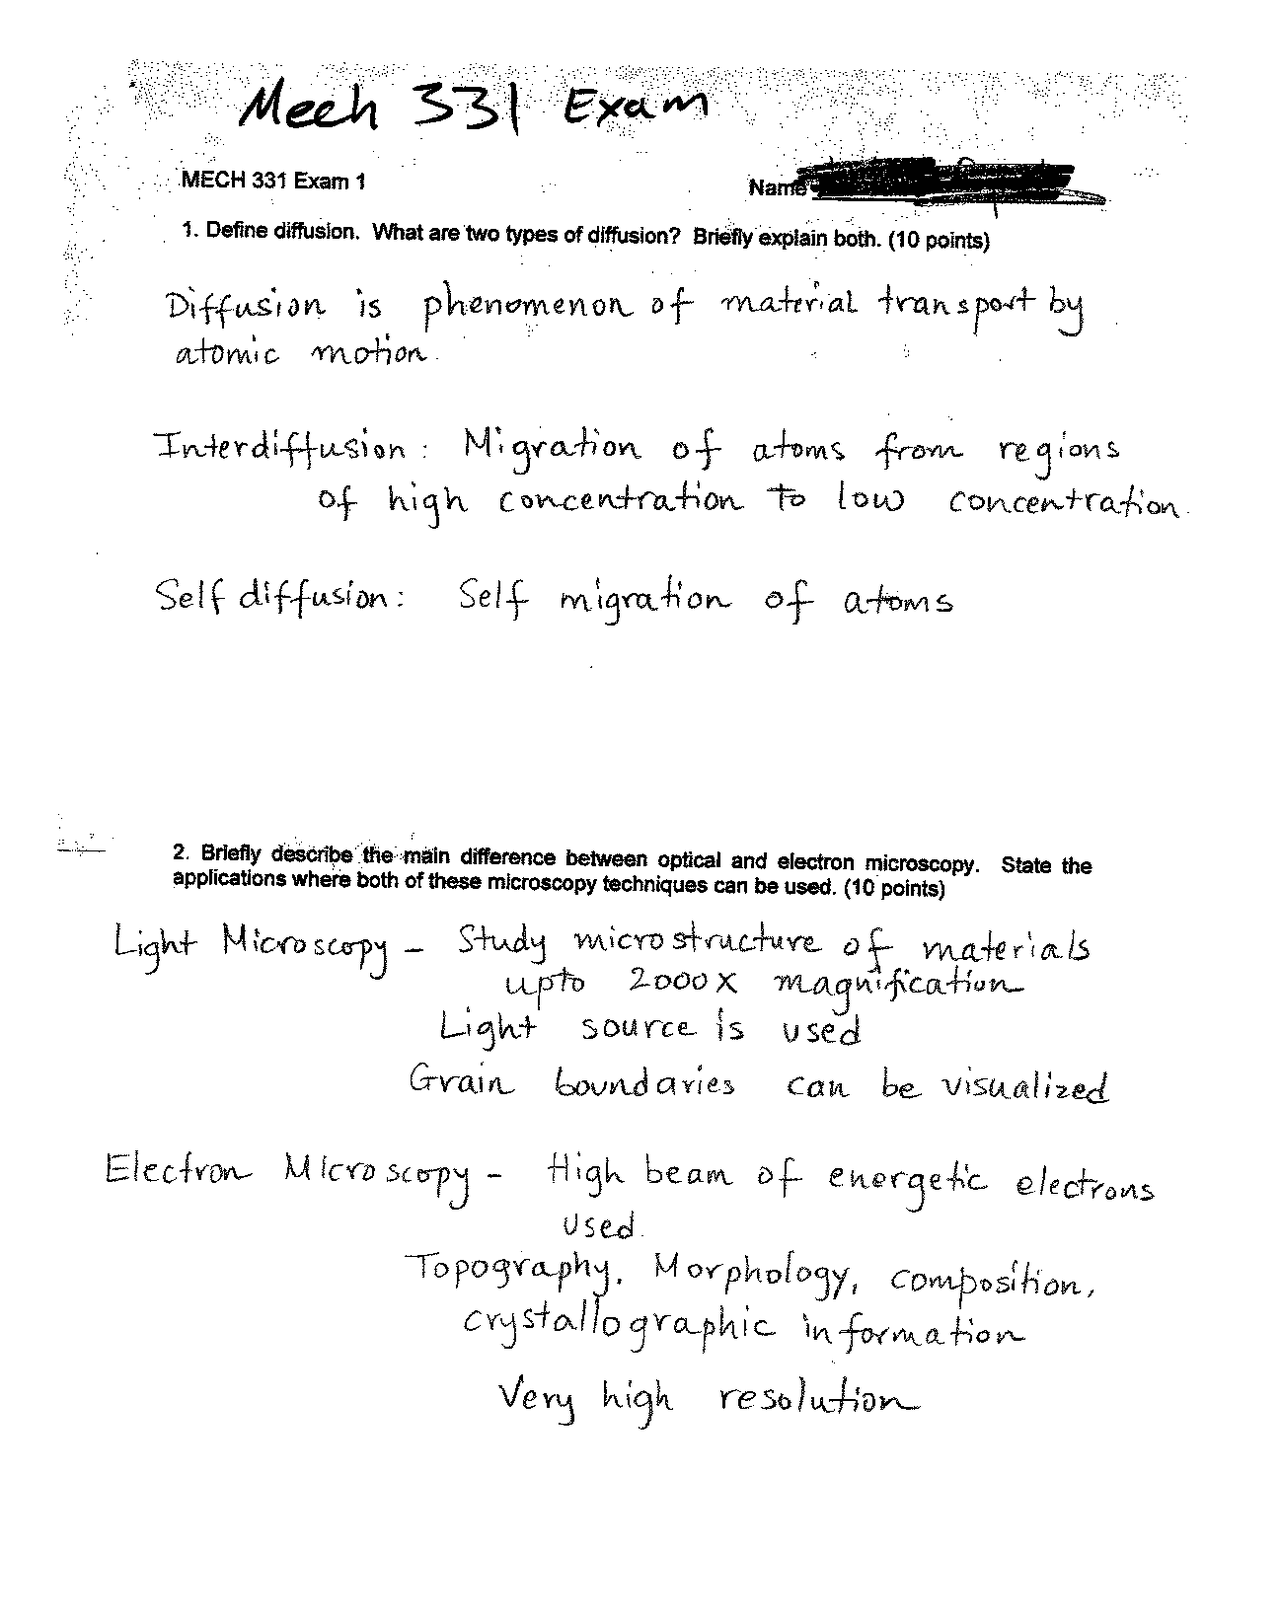 Mech 331 Exam
MECH 331 Exam 1 Name
1. Define diffusion. What are two types of diffusion? Briefly explain both. (10 points)
Diffusion is phenomenon of material transport by
atomic motion.
Interdiffusion: Migration of atoms from regions
of high concentration to low concentration.
Self diffusion: Self migration of atoms
2. Briefly describe the main difference between optical and electron microscopy. State the
applications where both of these microscopy techniques can be used. (10 points)
Light Microscopy - Study microstructure of materials
upto 2000X magnification
Light source is used
Grain boundaries can be visualized
Electron Microscopy - High beam of energetic electrons
used.
Topography, Morphology, composition,
crystallographic information
Very high resolution